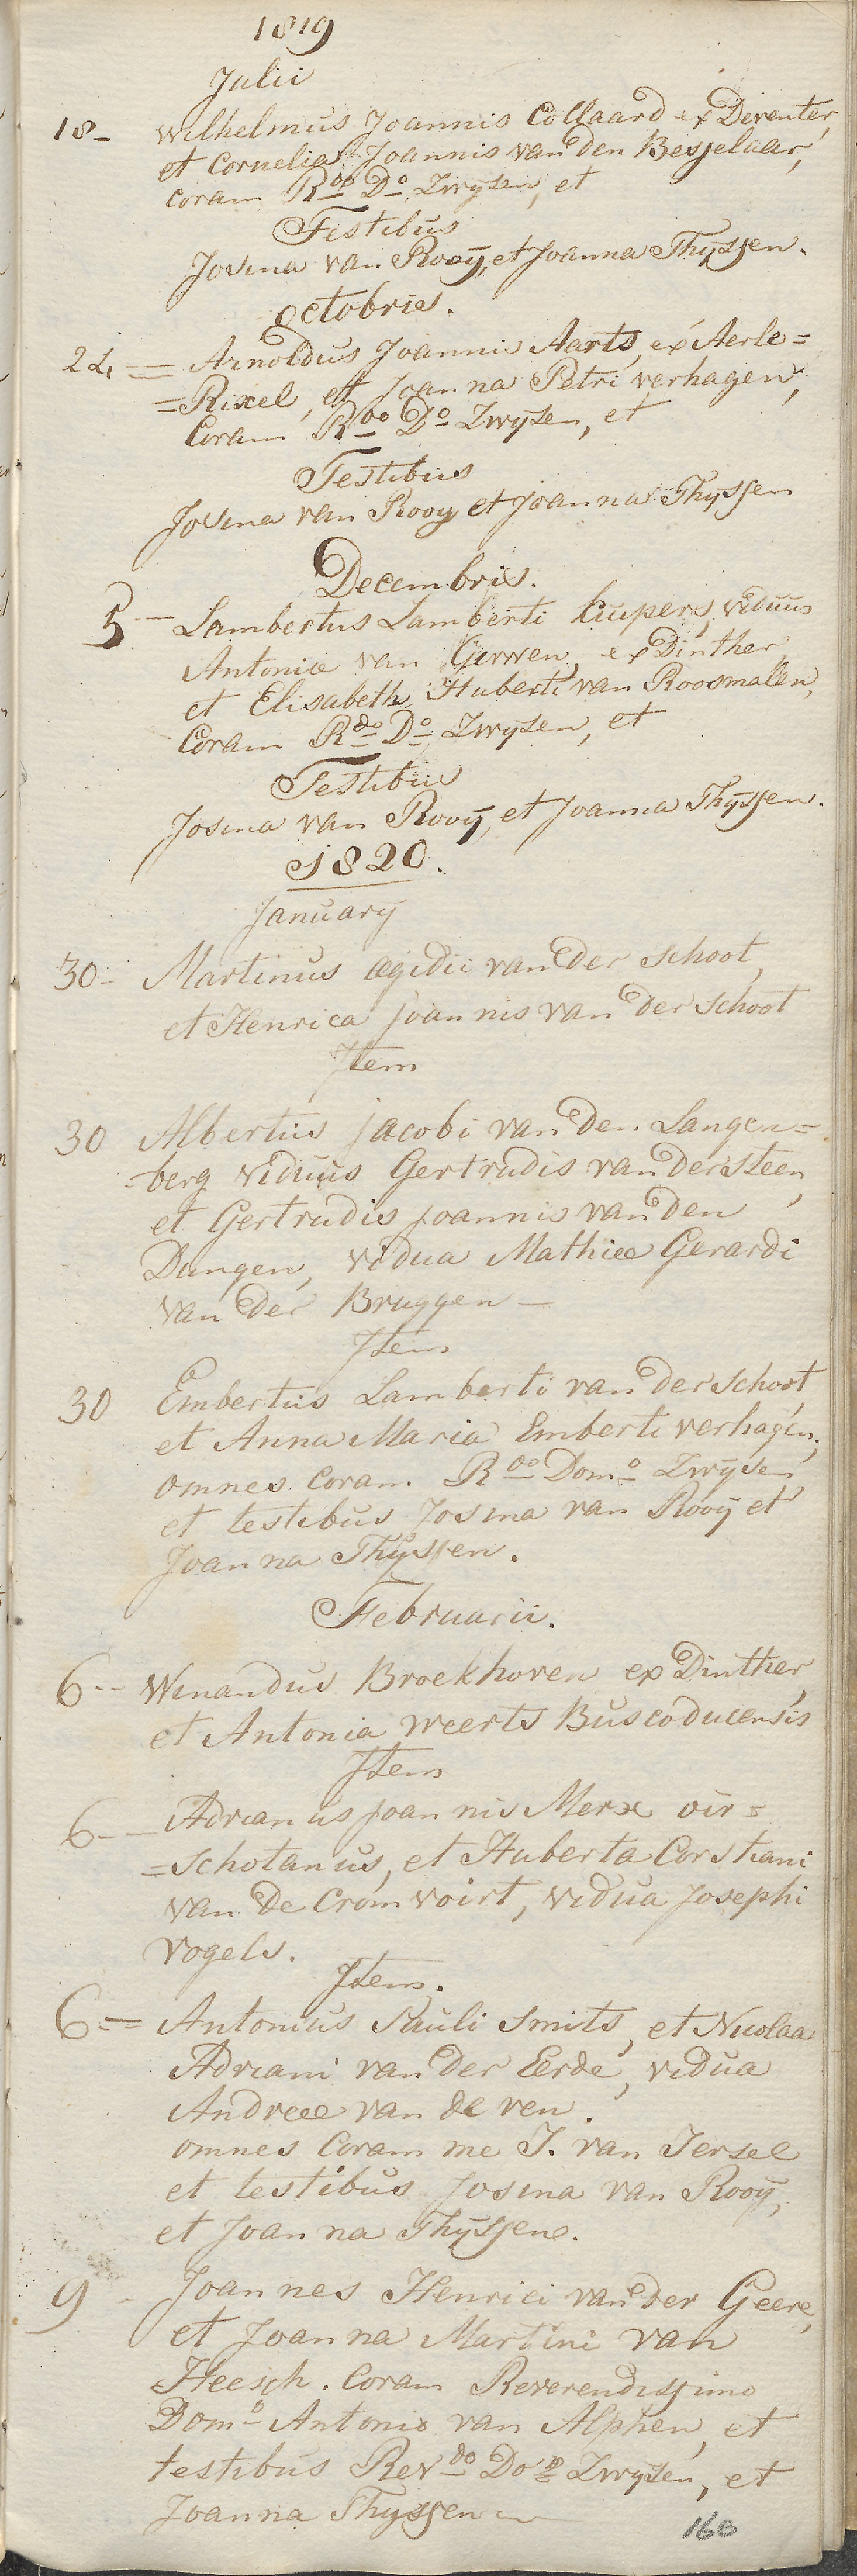 1819
Julii
18- Wilhelmus Joannis Collaard ex Deventer,
et Cornelia Joannis van den Besselaar,
coram Rdo Do Zwysen, et
Testibus
Josina van Rooÿ, et Joanna Thyssen.
octobris.
24 = Arnoldus Joannis Aarts, ex Aerle=
=Rixel, et Joanna Petri verhagen,
Coram Rdo Do Zwysen, et
Testibus
Josina van Rooy et Joanna Thyssen
Decembris.
5 - Lambertus Lamberti Cupers, viduus
Antoniæ van Gerwen, ex Dinther,
et Elisabeth Huberti van Roosmalen,
Coram Rdo Do Zwysen, et
Testibus
Josina van Rooÿ, et Joanna Thyssen.
1820.
Januarÿ
30- Martinus ægidii van der Schoot,
et Henrica Joannis van der Schoot
Item
30 Albertus Jacobi van den Langen=
=berg viduus Gertrudis van der Steen,
et Gertrudis Joannis van den
Dungen, vidua Mathiæ Gerardi
van der Bruggen -
Item
30 Embertus Lamberti van der Schoot,
et Anna Maria Emberti verhagen,
omnes coram Rdo Domo Zwysen,
et testibus Josina van Rooÿ et
Joanna Thÿssen.
Februarii.
6-- Winandus Broekhoven ex Dinther,
et Antonia Weerts Buscoducensis
Item
6-- Adrianus Joannis Merx oir=
=Schotanus, et Huberta Corstiani
van de Cromvoirt, vidua Josephi
vogels.
Item.
6-- Antonius Pauli Smits, et Nicolaa
Adriani van der Eerde, vidua
Andreæ van de ven.
omnes Coram me J. van Iersel
et testibus Josina van Rooÿ,
et Joanna Thyssen.
9 - Joannes Henrici van der Geere,
et Joanna Martini van
Heesch. Coram Reverendissimo
Domo Antonio van Alphen, et
testibus Revdo Doo Zwysen, et
Joanna Thyssen -
168